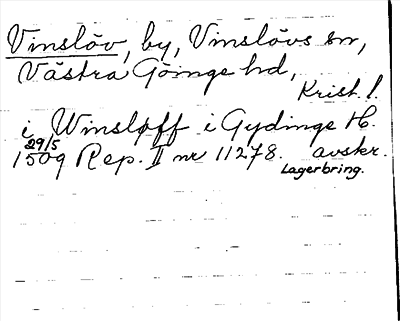 Vinslöv, by, Vinslövs sn,
Västra Göinge hd,
Krist. l.
i Winsløff i Gydinge H.
29/5
1509 Rep. II nr 11278. avskr.
Lagerbring.